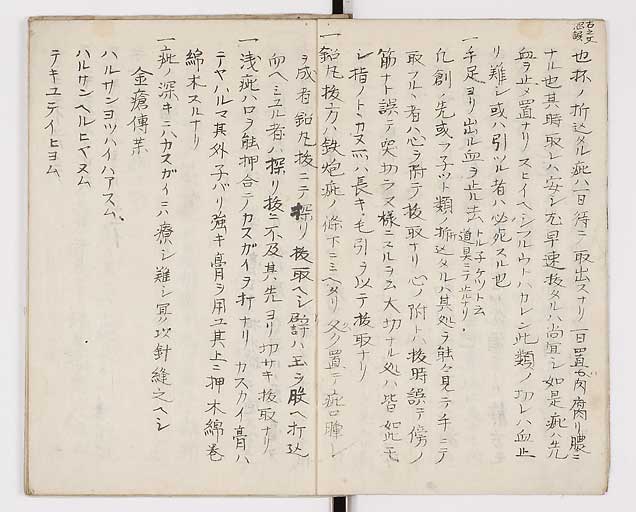 也杯ノ折込タル疵ハ一日待テ取出スナリ一日置ガ肉腐リ膿ニ
ナル也其時取レハ安シ尤早速抜タルハ尚宜シ如是疵ハ先
血ヲ止メ置ナリスヒイヘシフルウトハカレン此類ノ切レハ血止
リ難シ或ハ引ツル者ハ必死スル也
一手足ヨリ出ル血ヲ止ル法トルネケツトム道具ニテ止ルナリ
凡創ノ先或ハ子ツト類ノ折込タルハ其処ヲ能々見テ手ニテ
取フル丶者ハ心ヲ附テ抜取ナリ心ノ附トハ抜時誤テ傍ノ
筋ナト誤テ突切ラヌ様ニスルヲ云大切ナル処ハ皆如此モ
シ指ノトヽカヌ所ハ長キ毛引ヲ以テ抜取ナリ
一鉛丸抜方ハ鉄炮疵ノ條下ニミヘタリ又久置テ疵口腫レ
ヲ成者鉛丸抜ニテ探リ抜取ヘシ譬ハ玉ヲ股ヘ打込
向ヘミユル者ハ探リ抜ニ不及其先ヨリ切サキ抜取ナリ
一浅疵ハ口ヲ能押合テカスガイヲ打ナリカスカイ膏ハ
テヤハルマ其外子バリ強キ膏ヲ用ユ其上ニ押木綿巻
綿木スルナリ
一疵ノ深キニハカスガイニハ療シ難シ冥々以針縫之ヘシ
金瘡傳薬
ハルサンヨツハイハアスム、
ハルサンヘルヒヤヌム
テキユテイヒヨム